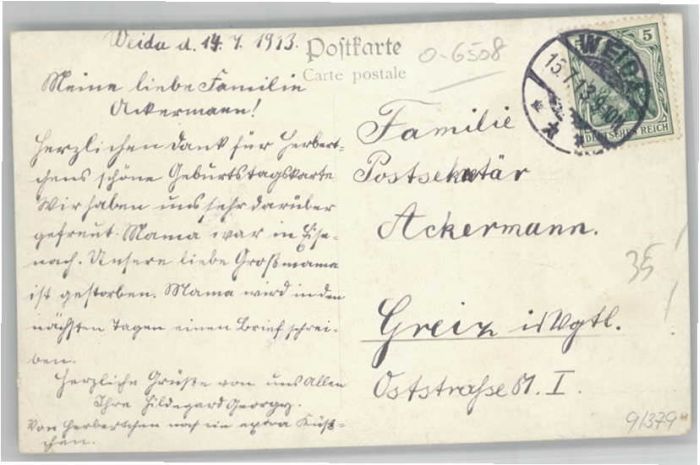 Weida d. 14. 7. 1913.
Postkarte
Carte postale
0-6508
WEIDA
15.7.13.
5
DEUTSCHES REICH
Meine liebe Familie
Ackermann!
Herzlichen Dank für Herbert-
chens schöne Geburtstagskarte
Wir haben uns sehr darüber
gefreut. Mama war in Eise-
nach. Unsere liebe Großmama
ist gestorben. Mama wird in den
nächsten Tagen einen Brief schrei-
ben.
Herzliche Grüße von uns Allen
Ihre Hildegard
Von Herbertchen noch ein extra Küß-
chen.
Familie
Postsekretär
Ackermann.
Greiz i. Vgtl.
Oststraße 51. I.
35
91379